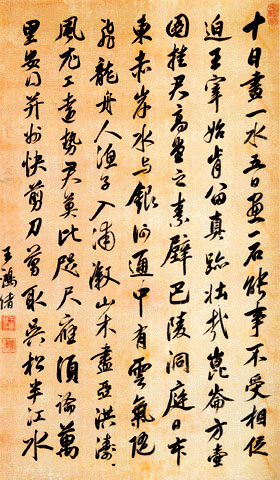 十日畫一水五日畫一石能事不受相促
迫王宰始肯留真跡壯哉崑崙方壺
圖挂君高堂之素壁巴陵洞庭日本
東赤岸水與銀河通中有雲氣隨
飛龍舟人漁子入浦漵山木盡亞洪濤
風尤工遠勢君莫比咫尺應須論萬
里安得并州快剪刀剪取吳松半江水
王鴻緒